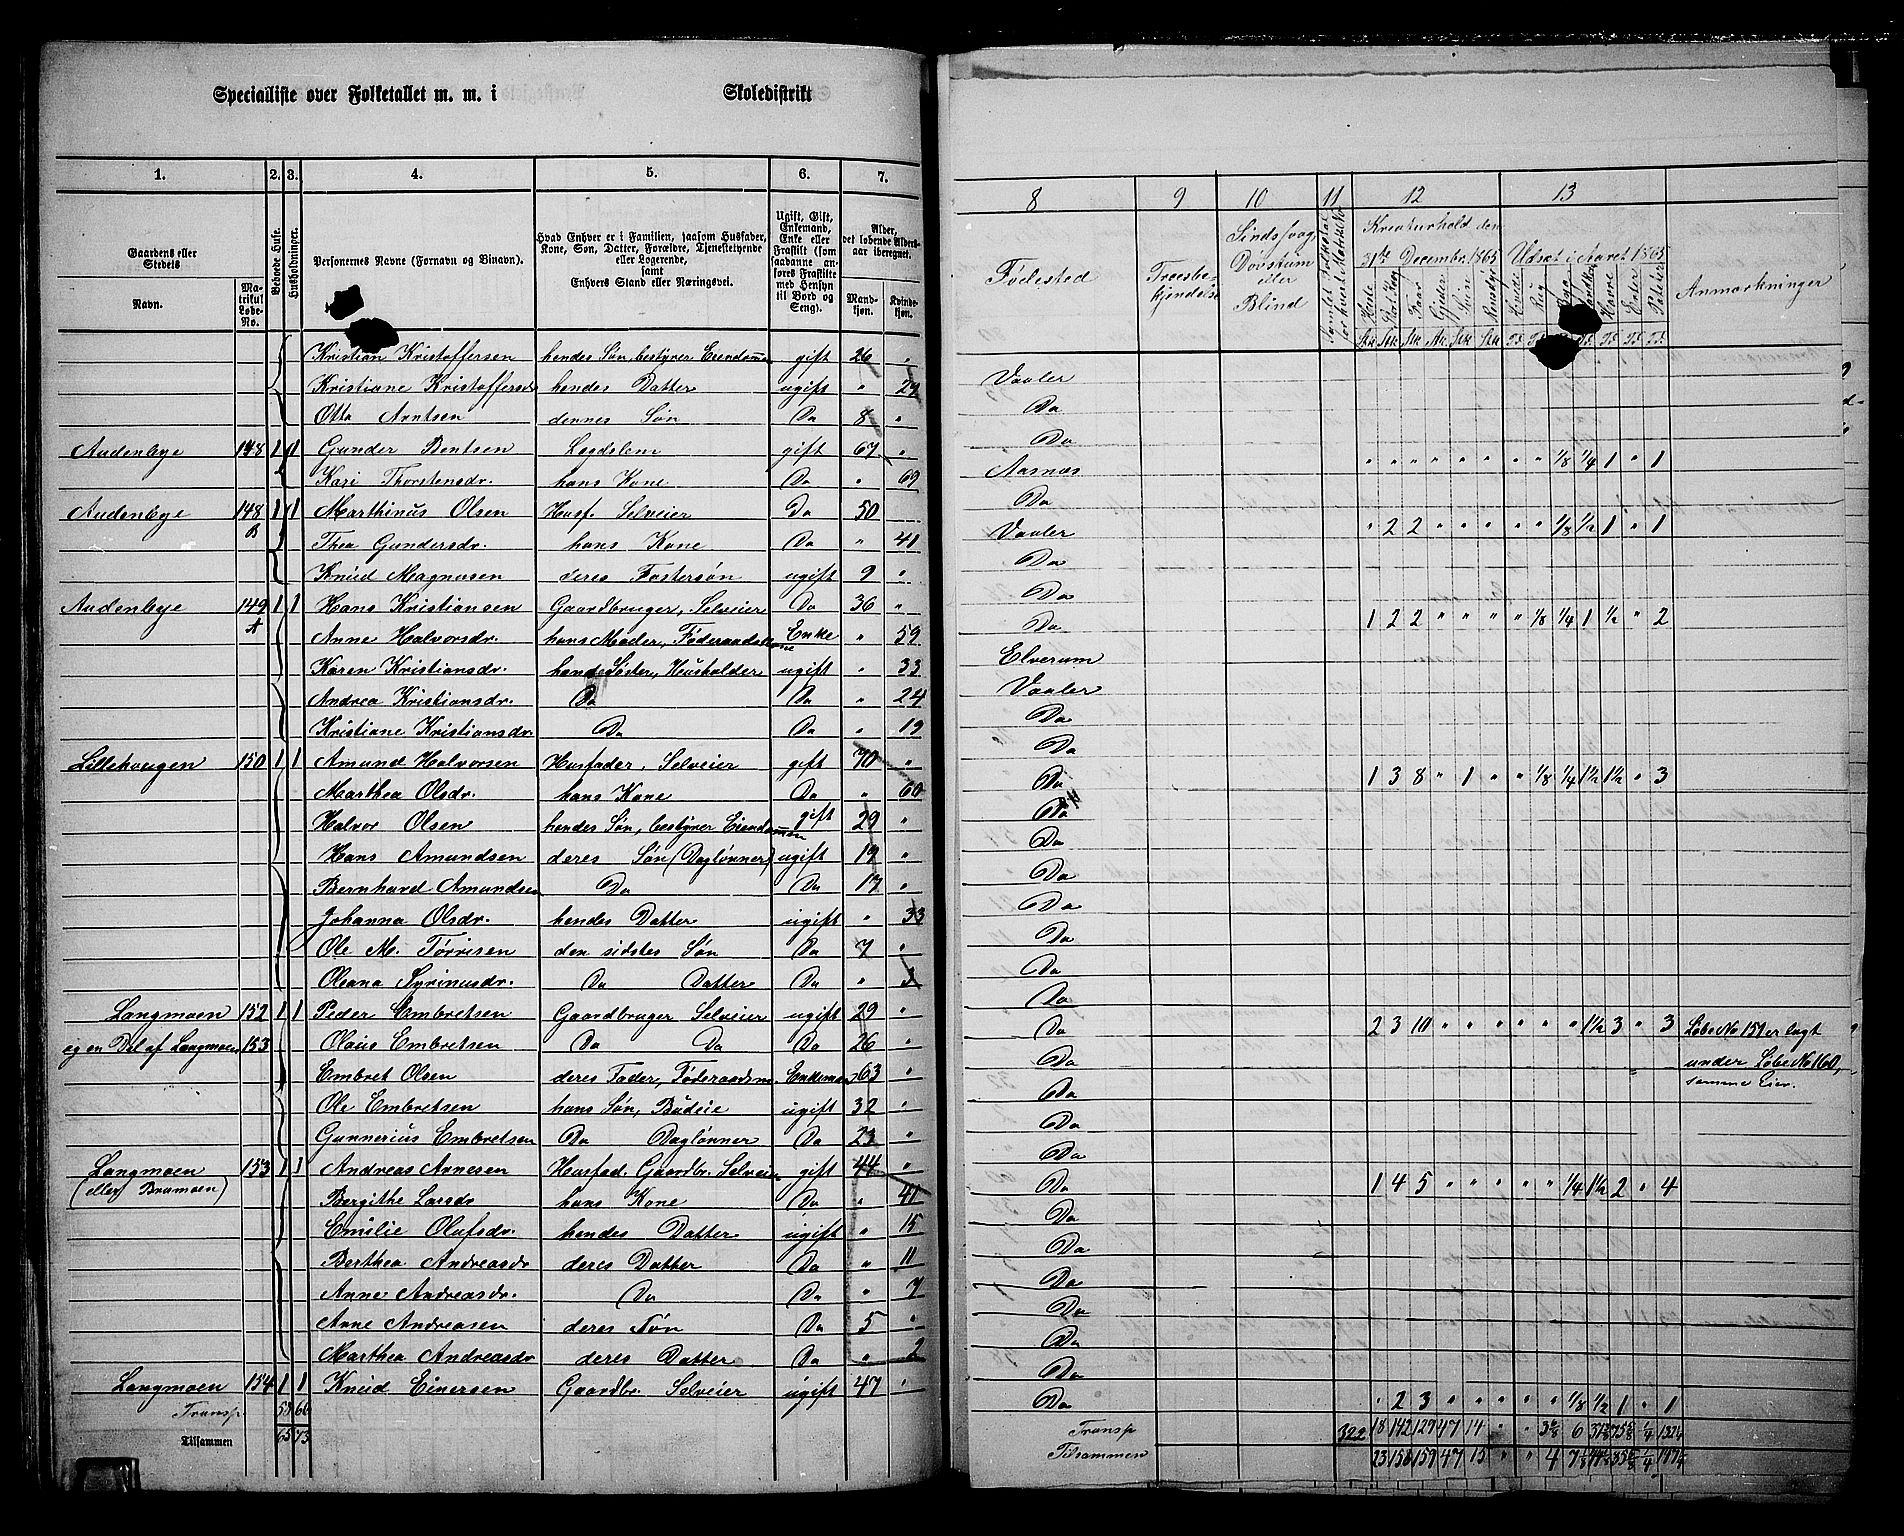 Specialliste over Folketallet m. m. i Skoledistrikt
1. 2. 3. 4. 5. 6. 7.
Gaardens eller Stedets
Navn. Matrikul Løbe-No.
Beboede Huse.
Husholdninger.
Personernes Navne (Fornavn og Binavn).
Hvad Enhver er i Familien, saasom Husfader, Kone, Søn, Datter, Forældre, Tjenestetyende eller Logerende, samt Enhvers Stand eller Næringsvei.
Ugift, Gift, Enkemand, Enke eller Fraskilt (som saadanne anføres Fraskilte med Hensyn til Bord og Seng).
Alder, det løbende Aldersaar iberegnet.
Mandkjøn. Kvindekjøn.
Kristian Kristoffersen hendes Søn, bestyrer Eiendommen gift 26 "
Kristiane Kristoffersd. hendes Datter ugift "
Otto Arntsen dennes Søn Do 8 "
Audenbye 148 1 1 Gunder Bentsen Lægdslem gift 67 "
Kari Thorstensdr. hans Kone Do " 69
Audenbye 148 B 1 1 Marthinus Olsen Husf. Selveier Do 50
Thea Gundersdr. hans Kone Do " 41
Knud Magnusen deres Fostersøn ugift 9 "
Audenbye 149 A 1 1 Hans Kristiansen Gaardbruger, Selveier Do 36 "
Anne Halvorsdr. hans Moder, Føderaadskone Enke " 59
Karen Kristiansdr. hendes Søster, Huusholder ugift " 33
Andrea Kristiansdr. Do Do " 24
Kristiane Kristiansdr. Do Do " 19
Lillehaugen 150 1 1 Amund Halvorsen Husfader, Selveier gift 70 "
Marthea Olsdr. hans Kone Do " 60
Halvor Olsen hendes Søn, bestyrer Eiendommen gift 29 "
Hans Amundsen deres Søn (Daglønner) ugift 19 "
Bernhard Amundsen Do Do 17 "
Johanna Olsdr. hendes Datter ugift " 33
Ole M. Torrisen den sidstes Søn Do 7 "
Oleana Syrinusdr. Do Datter Do " 3
Langmoen 152 1 1 Peder Embretsen Gaardbruger Selveier ugift 29 "
og en Del af Langmoen 153 Olaus Embretsen Do Do 26 "
Embret Olsen deres Fader, Føderaadsm. Enkemand 63 "
Ole Embretsen hans Søn, ugift 32 "
Gunnerius Embretsen Do Daglønner Do 23 "
Langmoen 153 1 1 Andreas Arnesen Husfad. Gaardbr. Selveier gift 44 "
(eller Bramoen) Bergithe Larsdr hans Kone Do " 41
Emilie Olufsdr. hendes Datter ugift " 15
Berthea Andreasdr deres Datter Do " 11
Anne Andreasdr. Do Do " 7
Arne Andreasen deres Søn Do 5 "
Marthea Andreasdr deres Datter Do " 2
Langmoen 154 1 1 Knud Einersen Gaardbr. Selveier ugift 47 "
Transp
Tilsammen 65 73
8 9 10 11 12 13
Fødested
Troesbekjendelse
Sindssvag Døvstum eller Blind
Kreaturhold den 31te December 1865
Udsæt i Aaret 1865
Anmærkninger
Vaaler
Do
Do
Aasnæs " " " " " " " " 1/8 1/4 1 " 1
Do
Vaaler " 2 2 " " " " " 1/8 1/2 1 " 1
Do
Do
Do 1 2 2 " " " " 1/8 1/4 1 1/2 " 2
Elverum
Vaaler
Do
Do
Do 1 3 8 " 1 " " 1/8 1/4 1 1/2 1 1/2 " 3
Do
Do
Do
Do
Do
Do
Do
Do 2 3 10 " " " " " " 1 1/2 3 " 3 Løbe No 151 er lagt
Do under Løbe No 160,
Do samme Eier.
Do
Do
Do 1 4 5 " " " " " 1/4 1 1/2 2 " 4
Do
Do
Do
Do
Do
Do
Do " 2 3 " " " " " 1/8 1/2 1 " 1
Transp 322 18 142 129 47 14
Tilsammen 23 158 159 47 15